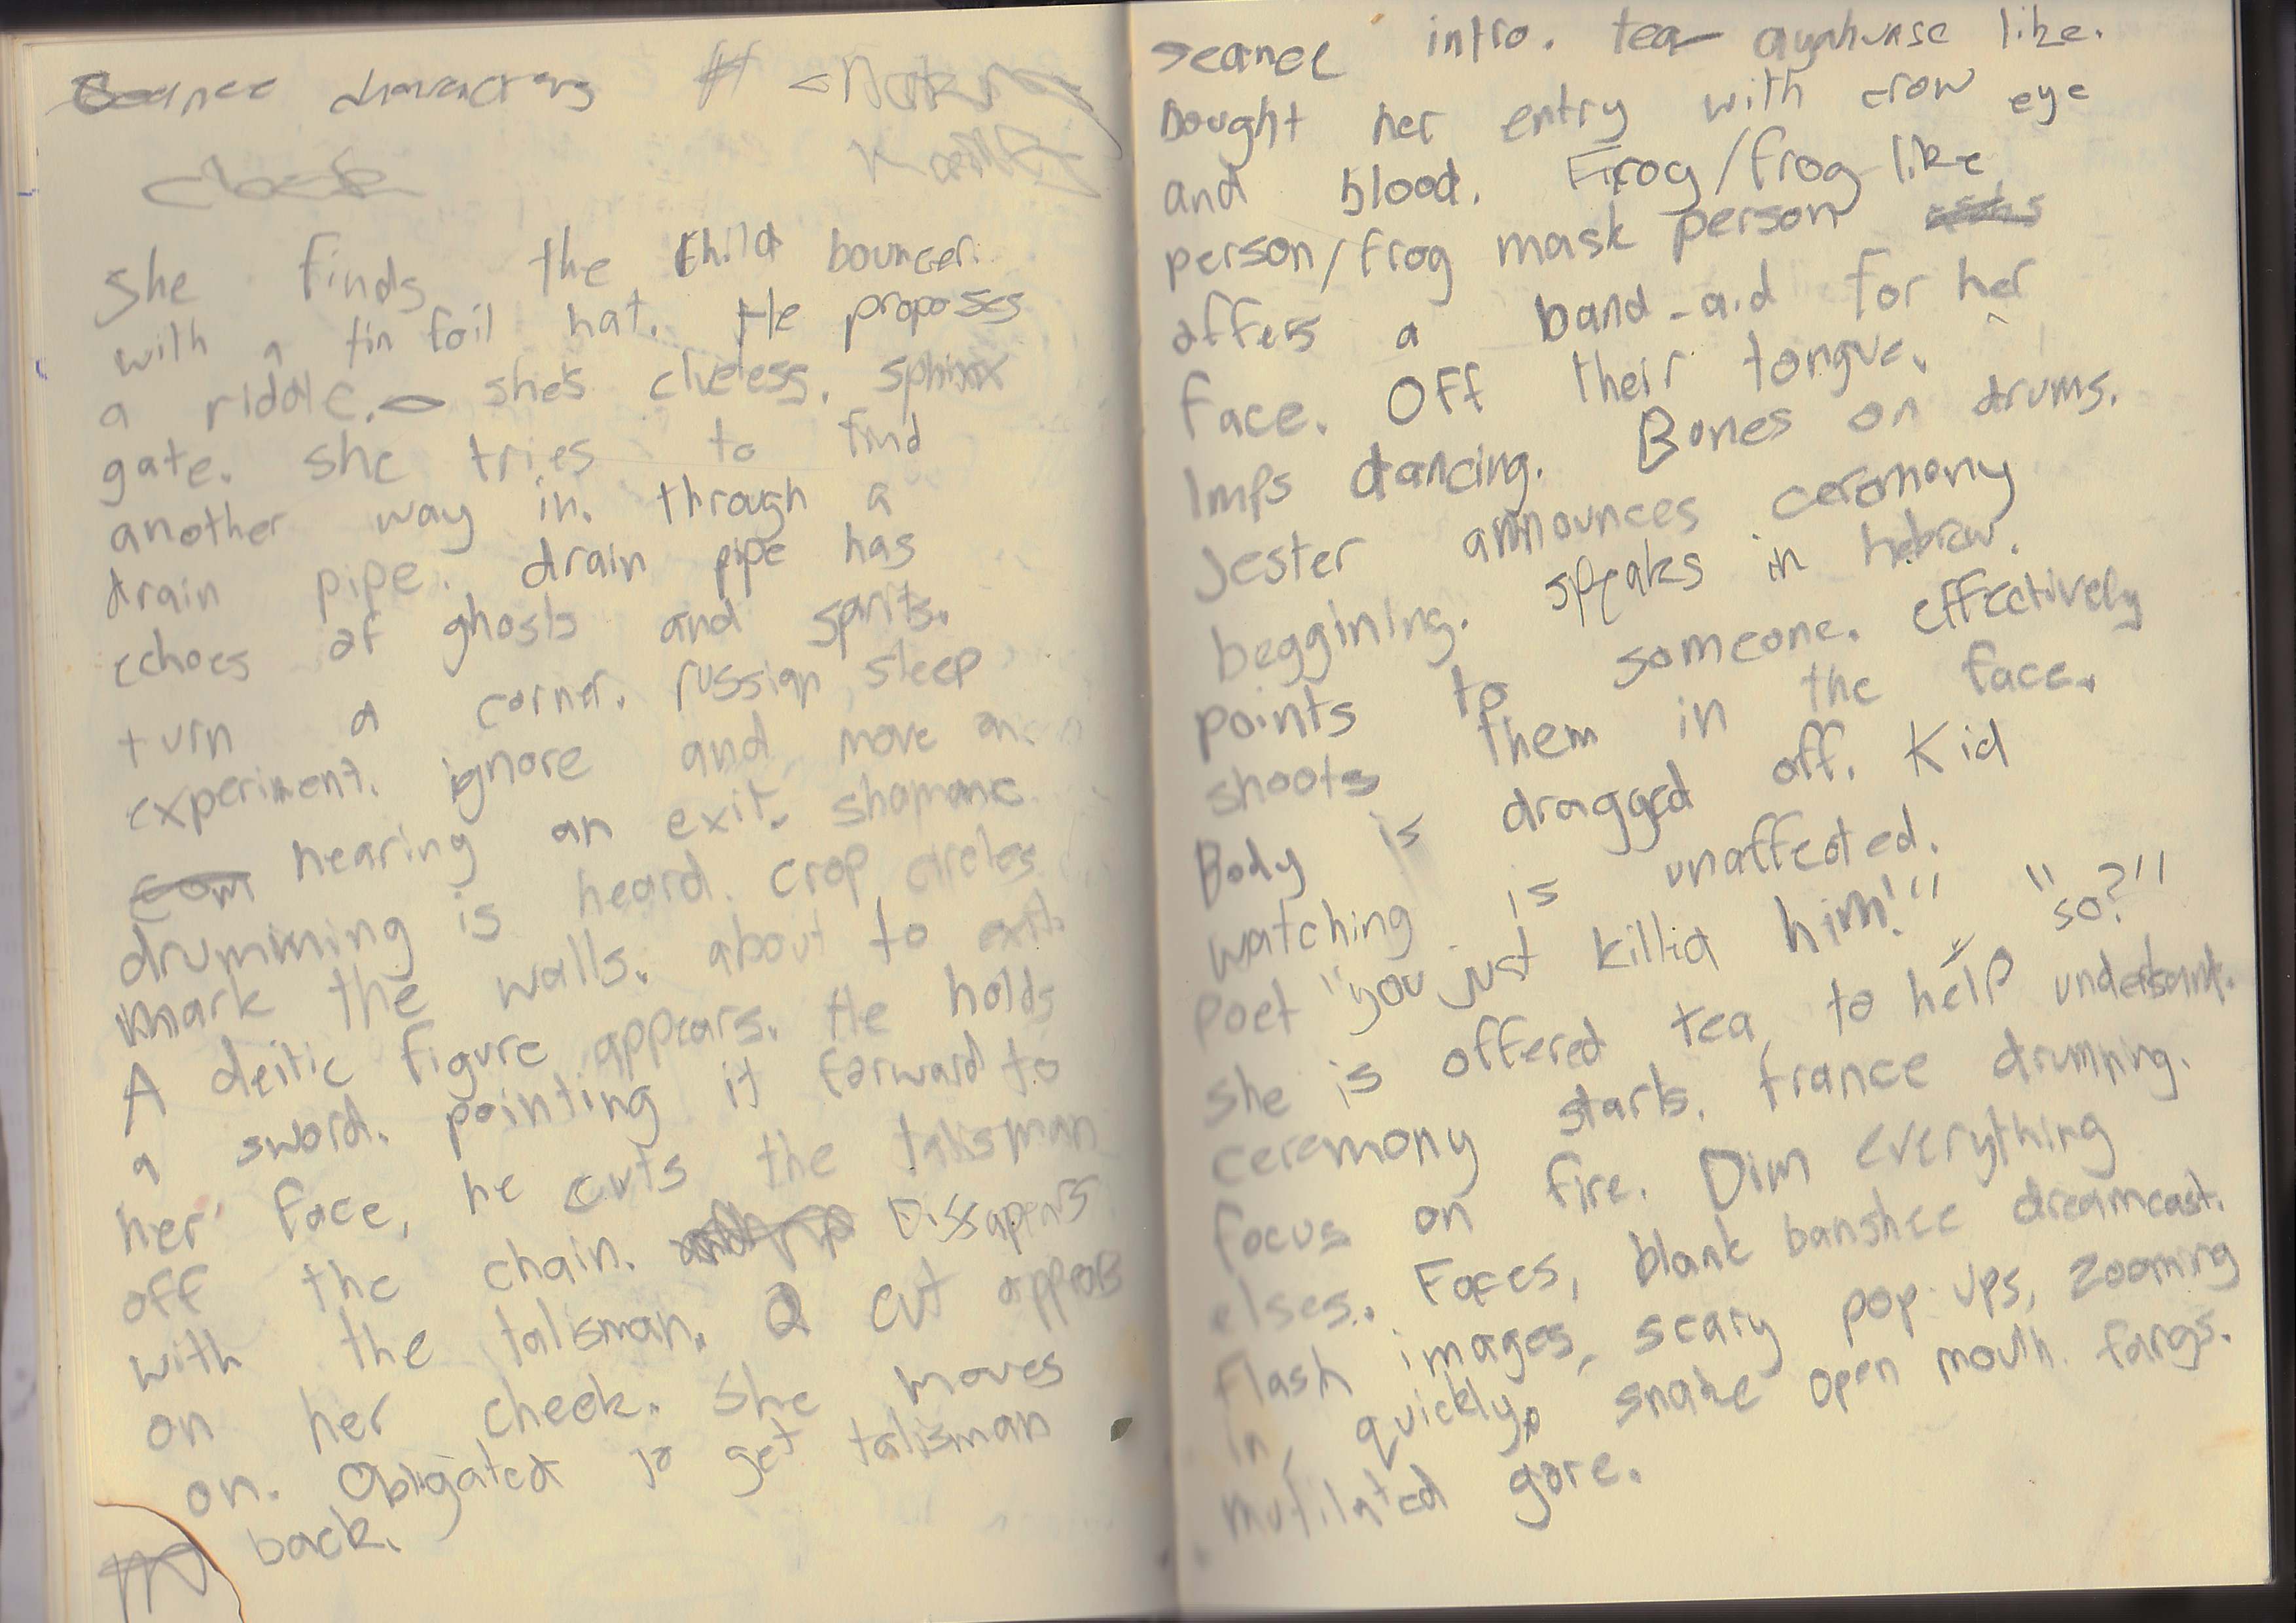 characters #
She finds the child bouncer.
with a tin foil hat. He proposes
a riddle. she's clueless. sphinx
gate. she tries to find
another way in. through a
drain pipe. drain pipe has
echoes of ghosts and spirits.
turn a corner. russian sleep
experiment. ignore and move on.
nearing an exit. shamanic
drumming is heard. crop circles
mark the walls. about to exit.
A deitic figure appears. He holds
a sword. pointing it forward to
her face, he cuts the talisman
off the chain. Dissapears
with the talisman. a cut appears
on her cheek. She moves
on. Obligated to get talisman
back.
seance intro. tea like.
Bought her entry with crow eye
and blood. Frog/frog like
person/frog mask person
offers a band-aid for her
face. Off their tongue.
Imps dancing. Bones on drums.
Jester announces ceremony
beggining. speaks in hebrew.
points to someone. effectively
shoots them in the face.
Body is dragged off. Kid
watching is unaffected.
Poet "you just killed him!" "so?"
She is offered tea, to help understand.
ceremony starts. trance drumming.
focus on fire. Dim everything
elses. Faces, blank banshee dreamcast.
flash images, scary pop ups, zooming
in, quickly, snake open mouth fangs.
mutilated gore.